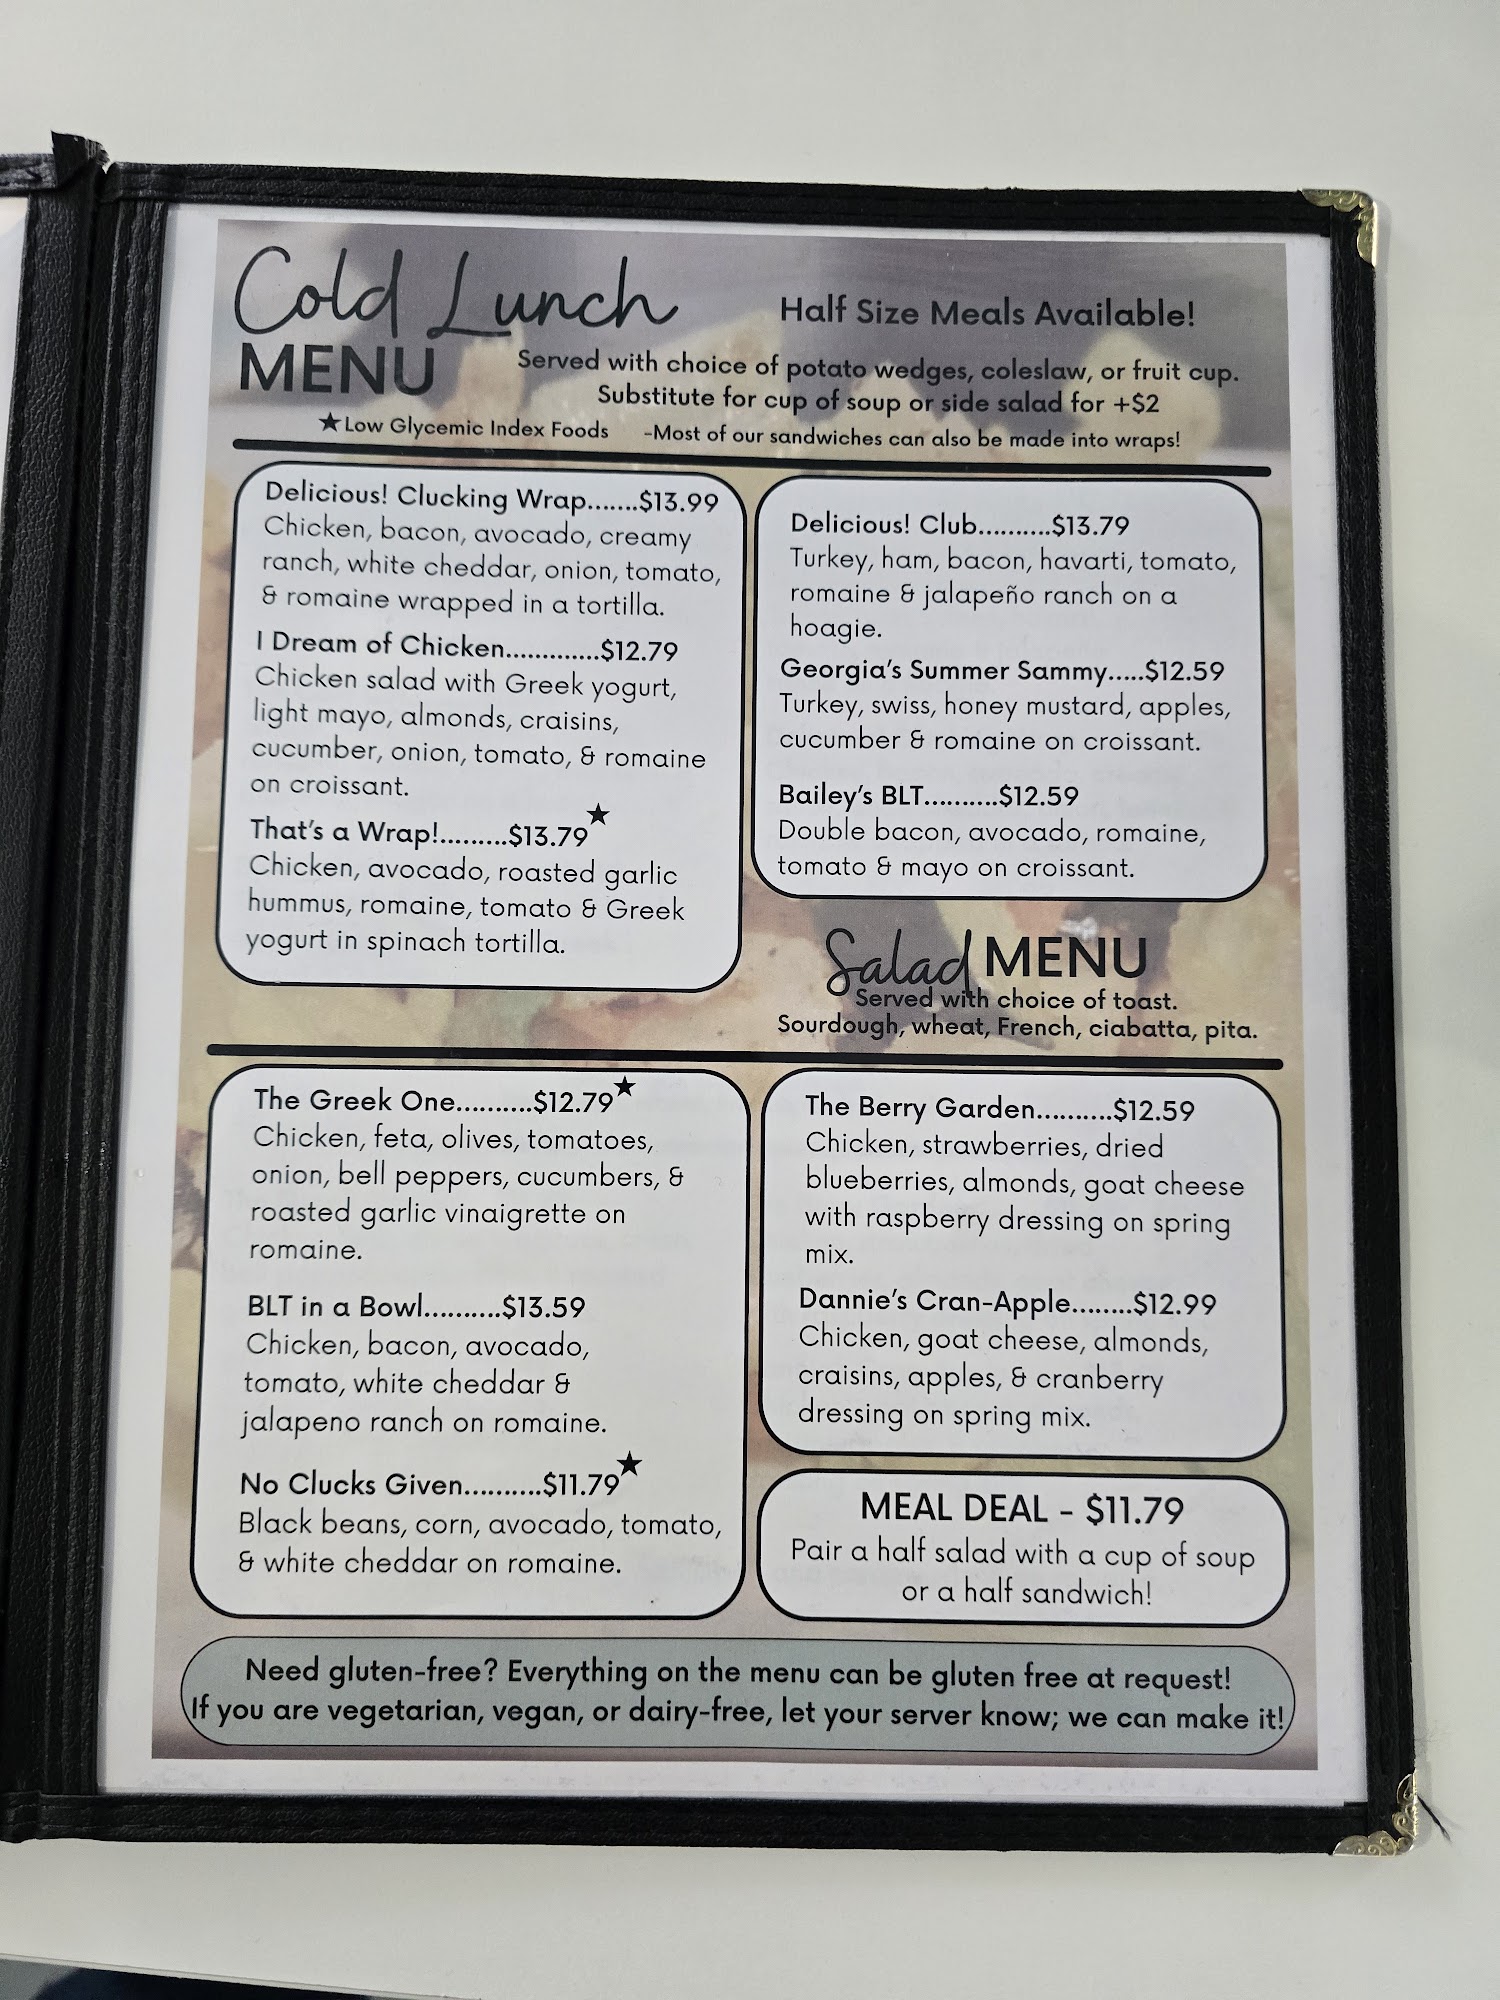 Cold Lunch
MENU
Half Size Meals Available!
Served with choice of potato wedges, coleslaw, or fruit cup.
Substitute for cup of soup or side salad for +$2
★Low Glycemic Index Foods -Most of our sandwiches can also be made into wraps!
Delicious! Clucking Wrap.......$13.99
Chicken, bacon, avocado, creamy
ranch, white cheddar, onion, tomato,
& romaine wrapped in a tortilla.
I Dream of Chicken.............$12.79
Chicken salad with Greek yogurt,
light mayo, almonds, craisins,
cucumber, onion, tomato, & romaine
on croissant.
That's a Wrap!.........$13.79★
Chicken, avocado, roasted garlic
hummus, romaine, tomato & Greek
yogurt in spinach tortilla.
Delicious! Club..........$13.79
Turkey, ham, bacon, havarti, tomato,
romaine & jalapeño ranch on a
hoagie.
Georgia's Summer Sammy.....$12.59
Turkey, swiss, honey mustard, apples,
cucumber & romaine on croissant.
Bailey's BLT..........$12.59
Double bacon, avocado, romaine,
tomato & mayo on croissant.
Salad MENU
Served with choice of toast.
Sourdough, wheat, French, ciabatta, pita.
The Greek One..........$12.79★
Chicken, feta, olives, tomatoes,
onion, bell peppers, cucumbers, &
roasted garlic vinaigrette on
romaine.
BLT in a Bowl..........$13.59
Chicken, bacon, avocado,
tomato, white cheddar &
jalapeno ranch on romaine.
No Clucks Given..........$11.79★
Black beans, corn, avocado, tomato,
& white cheddar on romaine.
The Berry Garden..........$12.59
Chicken, strawberries, dried
blueberries, almonds, goat cheese
with raspberry dressing on spring
mix.
Dannie's Cran-Apple........$12.99
Chicken, goat cheese, almonds,
craisins, apples, & cranberry
dressing on spring mix.
MEAL DEAL - $11.79
Pair a half salad with a cup of soup
or a half sandwich!
Need gluten-free? Everything on the menu can be gluten free at request!
If you are vegetarian, vegan, or dairy-free, let your server know; we can make it!